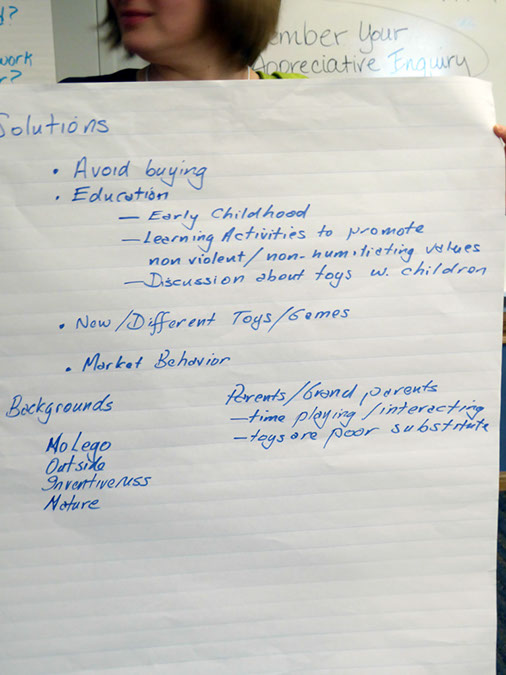 d?
work
r?
ember Your
Appreciative Enquiry
Solutions
• Avoid buying
• Education
— Early Childhood
— Learning Activities to promote
non violent / non-humiliating values
— Discussion about toys w. children
• New/Different Toys/Games
• Market Behavior
Backgrounds
Mo Lego
Outside
Inventiveness
Nature
Parents/Grand parents
— time playing / interacting
— toys are poor substitute